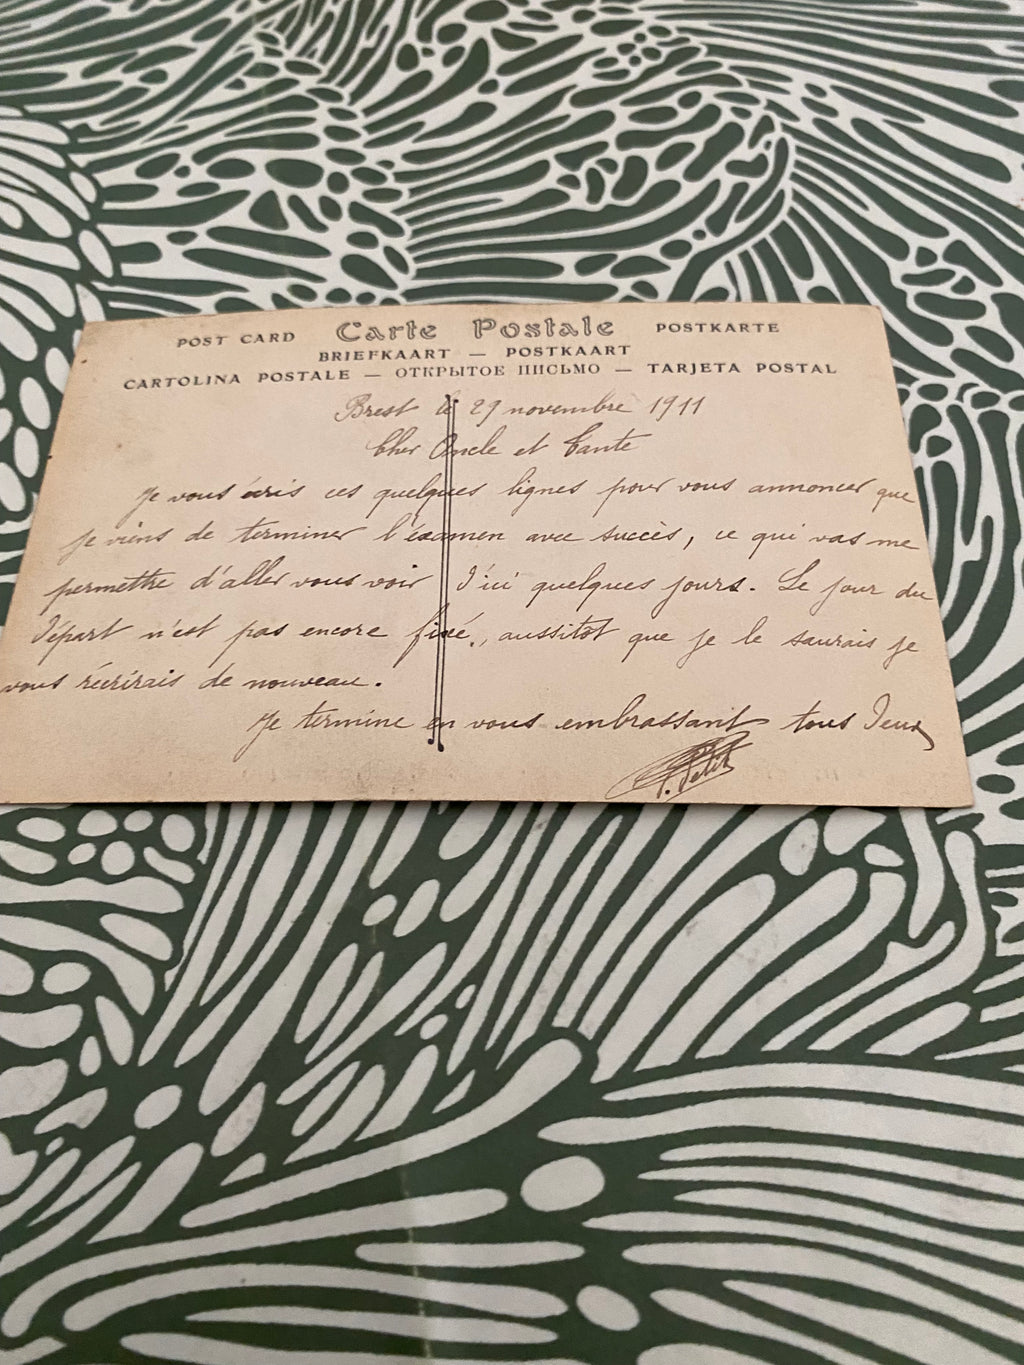 POST CARD Carte Postale POSTKARTE
BRIEFKAART — POSTKAART
CARTOLINA POSTALE — ОТКРЫТОЕ ПИСЬМО — TARJETA POSTAL
Brest le 29 novembre 1911
Cher Oncle et Tante
Je vous écris ces quelques lignes pour vous annoncer que
je viens de terminer l'éxamen avec succès, ce qui vas me
permettre d'aller vous voir d'ici quelques jours. Le jour du
départ n'est pas encore fixé, aussitôt que je le saurais je
vous réécrirais de nouveau.
Je termine en vous embrassant tous deux
Petit